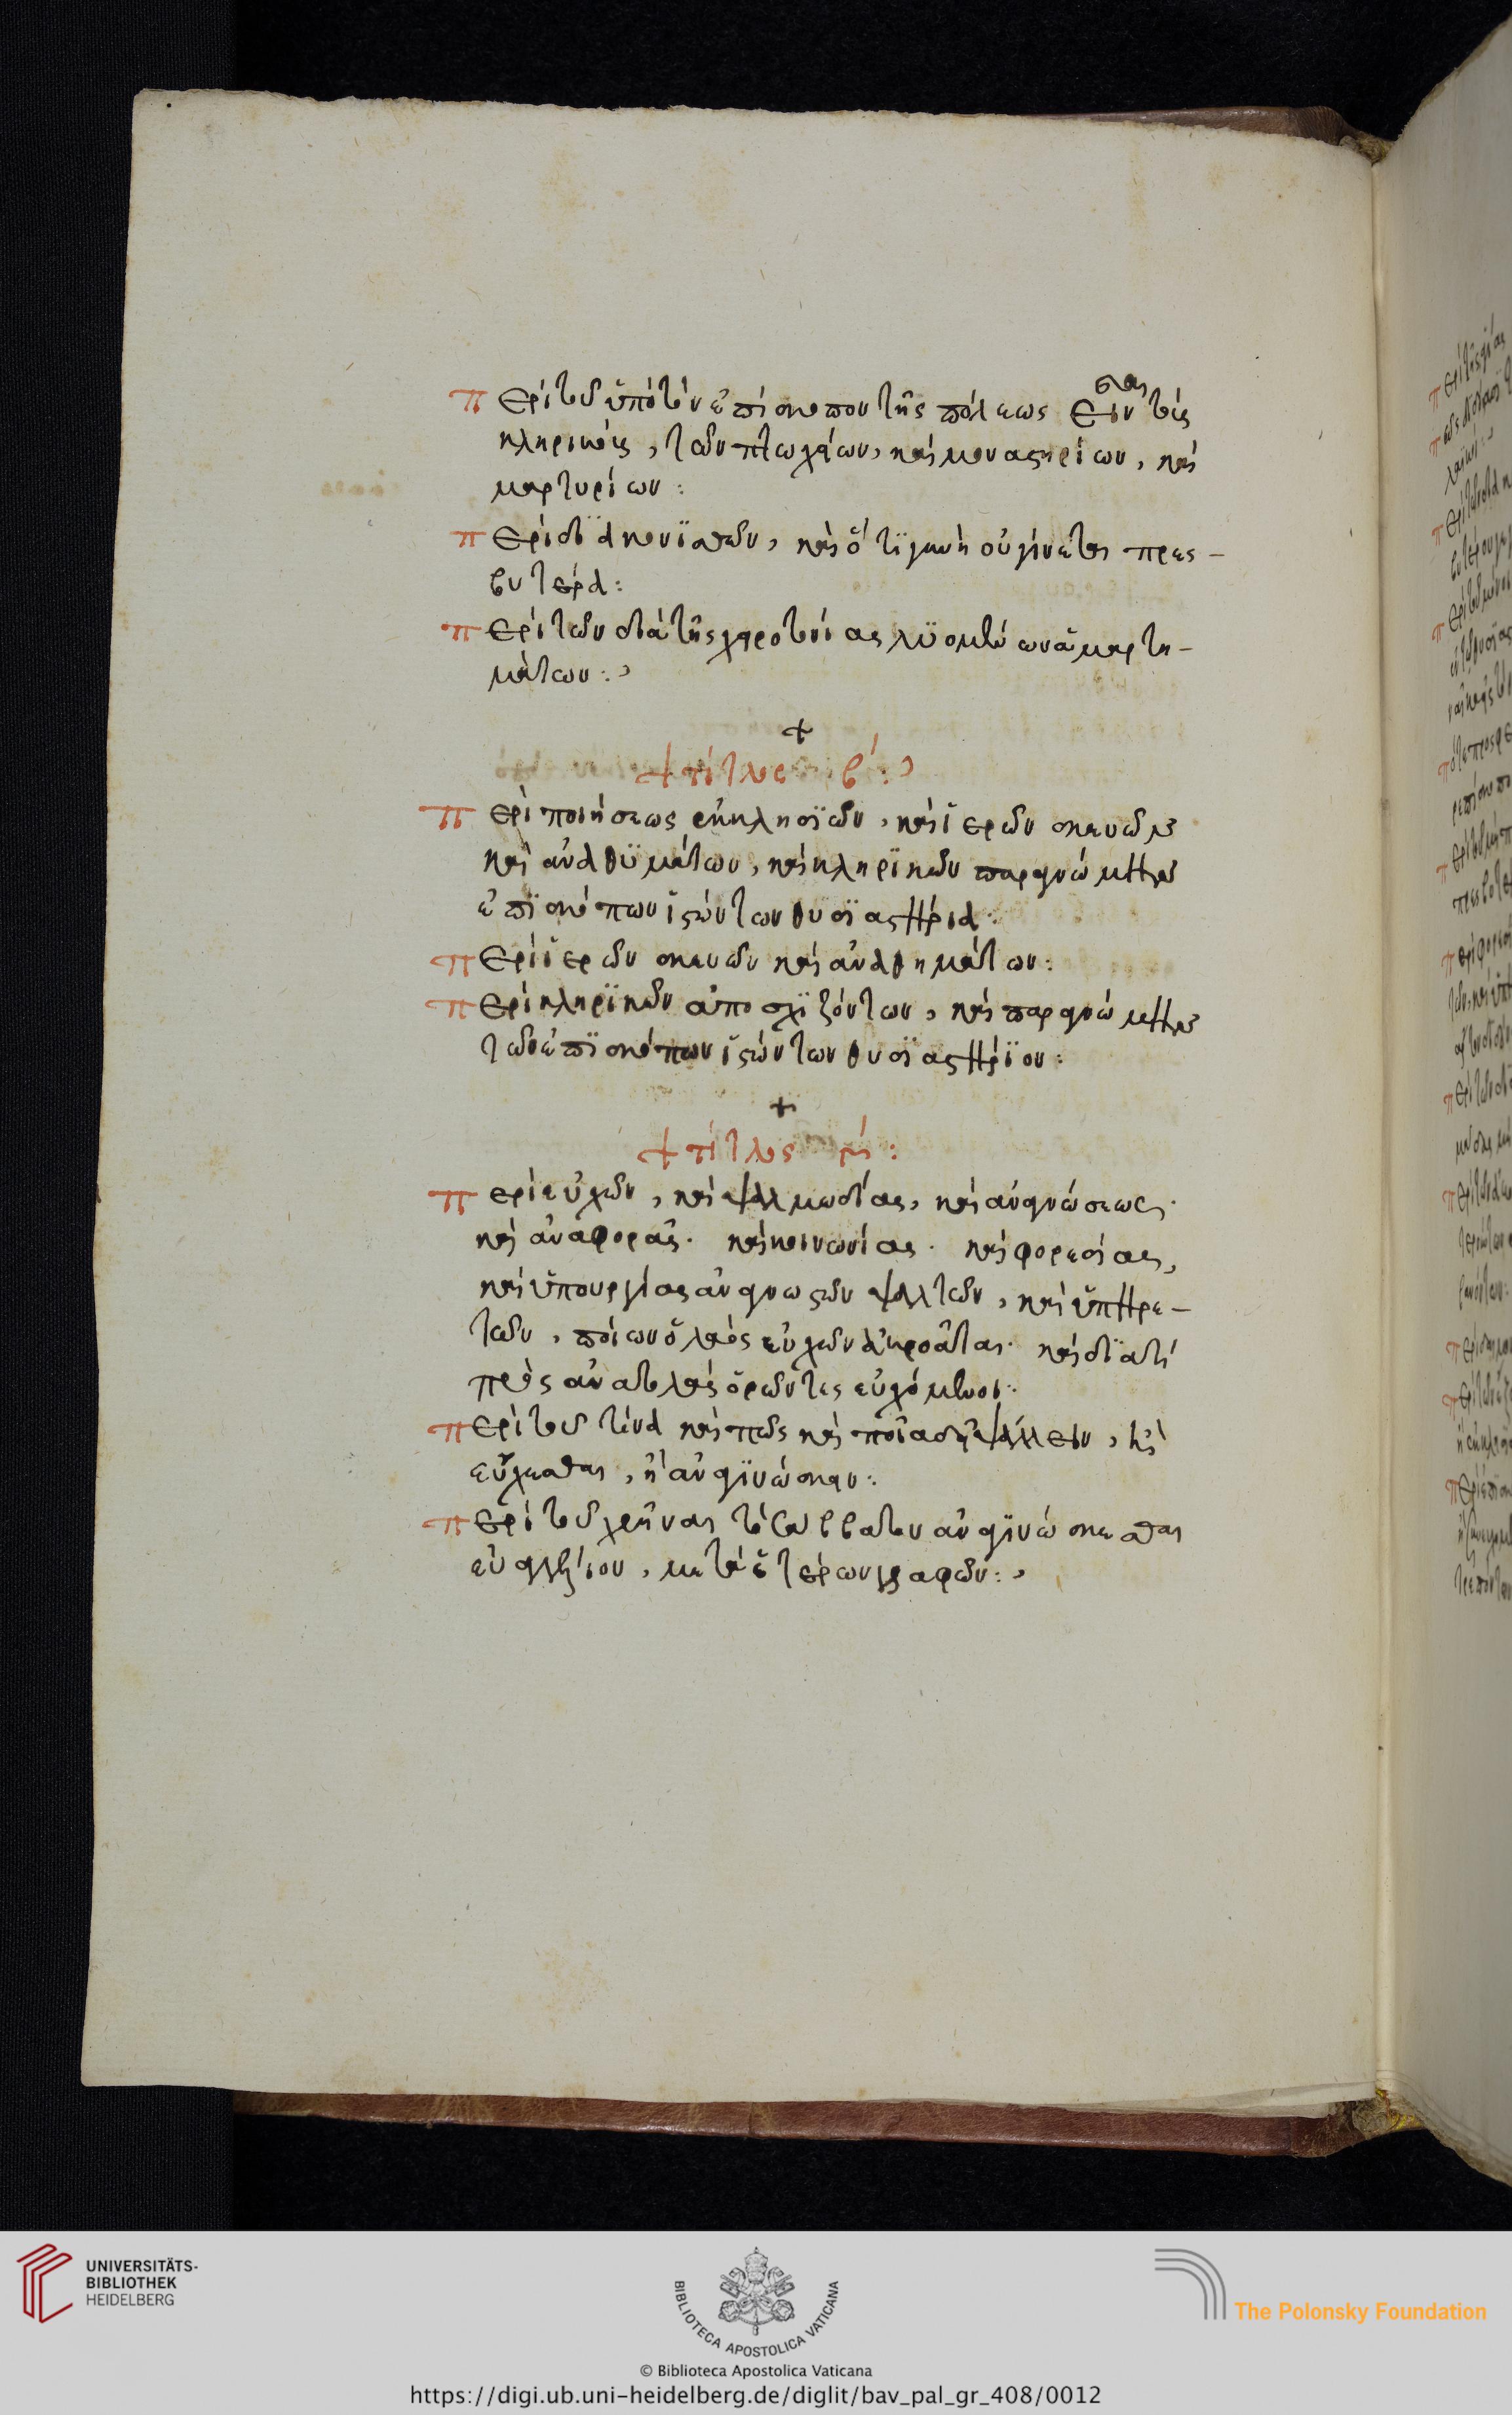 Περὶ τοῦ ὑπὸ τὸν ἐπίσκοπον τῆς πόλεως εἶναι τοὺς
κληρικοὺς, τῶν πτωχείων, καὶ μοναστηρίων, καὶ
μαρτυρίων:
Περὶ διακονϊσσῶν, καὶ ὅτϊ γυνὴ οὐ γίνεται πρεσ-
βυτέρα:
Περὶ τῶν διὰ τῆς χειροτονίας λυομένων ἁμαρτη-
μάτων:
+
+ τίτλος β´:
Περὶ ποιήσεως ἐκκλησϊῶν, καὶ ἱερῶν σκευῶν
καὶ ἀναθυμάτων, καὶ κληρϊκῶν παρὰ γνώμην
ἐπϊσκόπων ἱστώντων θυσϊαστήρια:
Περὶ ἱερῶν σκευῶν καὶ ἀναθημάτων:
Περὶ κληρϊκῶν ἀποσχϊζόντων, καὶ παρὰ γνώμην
τῶν ἐπϊσκόπων ἱστώντων θυσϊαστήρϊον:
+
+ τίτλος γ´:
Περὶ εὐχῶν, καὶ ψαλμωδίας, καὶ ἀναγνώσεως·
καὶ ἀναφορᾶς· καὶ κοινωνίας· καὶ φορεσίας,
καὶ ὑπουργίας ἀναγνωστῶν ψαλτῶν, καὶ ὑπηρε-
τῶν, ποίων ὁ λαὸς εὐχῶν ἀκροᾶται· καὶ διατί
πρὸς ἀνατολὰς ὁρῶντες εὐχόμεθα:
Περὶ τοῦ τίνα καὶ πῶς καὶ ποῖα δεῖ ψάλλειν, ἢ
εὔχεσθαι, ἢ ἀναγϊνώσκειν:
Περὶ τοῦ χρῆναι τὸ σαββάτον ἀναγϊνώσκεσθαι
εὐαγγέλιον, μετὰ ἑτέρων γραφῶν:
UNIVERSITÄTS-
BIBLIOTHEK
HEIDELBERG
BIBLIOTECA APOSTOLICA VATICANA
The Polonsky Foundation
© Biblioteca Apostolica Vaticana
https://digi.ub.uni-heidelberg.de/diglit/bav_pal_gr_408/0012